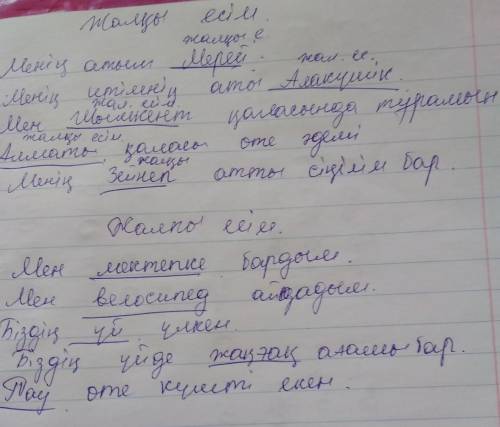 Жалқы есім.
жалқы е.
Менің атым Мерей. жал. ес.
Менің итімнің аты Алакүшік.
жал. есім
Мен Шымкент қаласында тұрамын
жалқы есім
Алматы қаласы өте әдемі
жалқы
Менің Зейнеп атты сіңілім бар.
Жалпы есім.
Мен мектепке бардым.
Мен велосипед айдадым.
Біздің үй үлкен.
Біздің үйде жаңғақ ағашы бар.
Тау өте күшті екен.